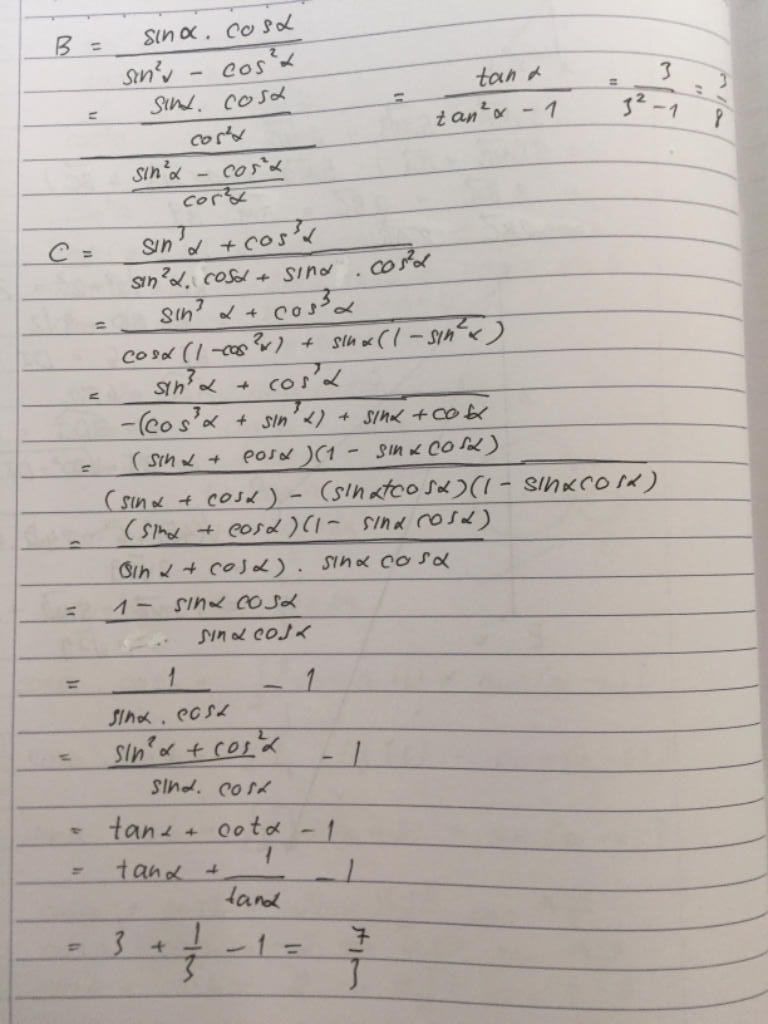 B = sinα . cosα / sin²α - cos²α
= sinα. cosα / cos²α / sin²α - cos²α / cos²α = tanα / tan²α - 1 = 3 / 3² - 1 = 3/8
C = sin³α + cos³α / sin²α. cosα + sinα . cos²α
= sin³α + cos³α / cosα(1-cos²α) + sinα(1-sin²α)
= sin³α + cos³α / -(cos³α + sin³α) + sinα + cosα
= (sinα + cosα)(1 - sinαcosα) / (sinα + cosα) - (sinα+cosα)(1 - sinαcosα)
= (sinα + cosα)(1 - sinαcosα) / (sinα + cosα). sinαcosα
= 1 - sinαcosα / sinαcosα
= 1 / sinα.cosα - 1
= sin²α + cos²α / sinα. cosα - 1
= tanα + cotα - 1
= tanα + 1/tanα - 1
= 3 + 1/3 - 1 = 7/3